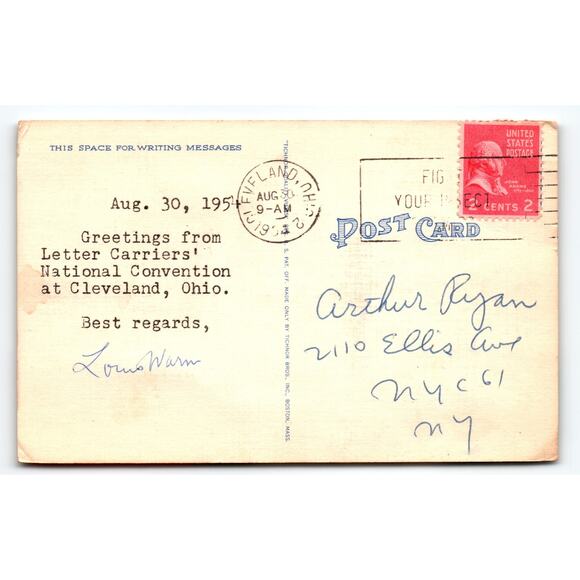 THIS SPACE FOR WRITING MESSAGES
Aug. 30, 1954
Greetings from
Letter Carriers'
National Convention
at Cleveland, Ohio.
Best regards,
Louis Warm
PAT. OFF. MADE ONLY BY TICHNOR BROS., INC., BOSTON, MASS.
CLEVELAND, OHIO 2
AUG 30
9-AM
1954
FIG
YOUR
UNITED
STATES
POSTAGE
JOHN ADAMS
2 CENTS 2
POST CARD
Arthur Ryan
2110 Ellis Ave
NYC 61
NY